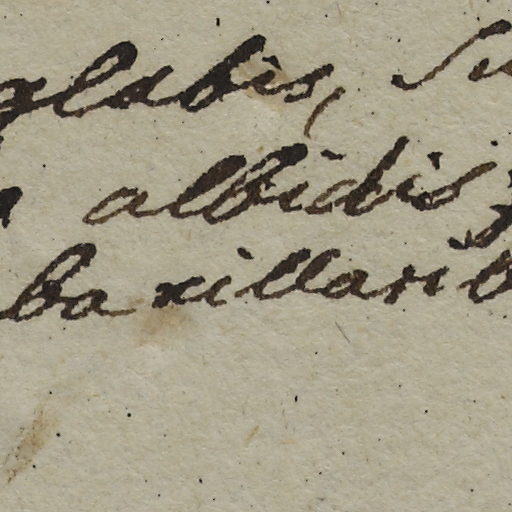 glabis, su
albidis;
baxillarib